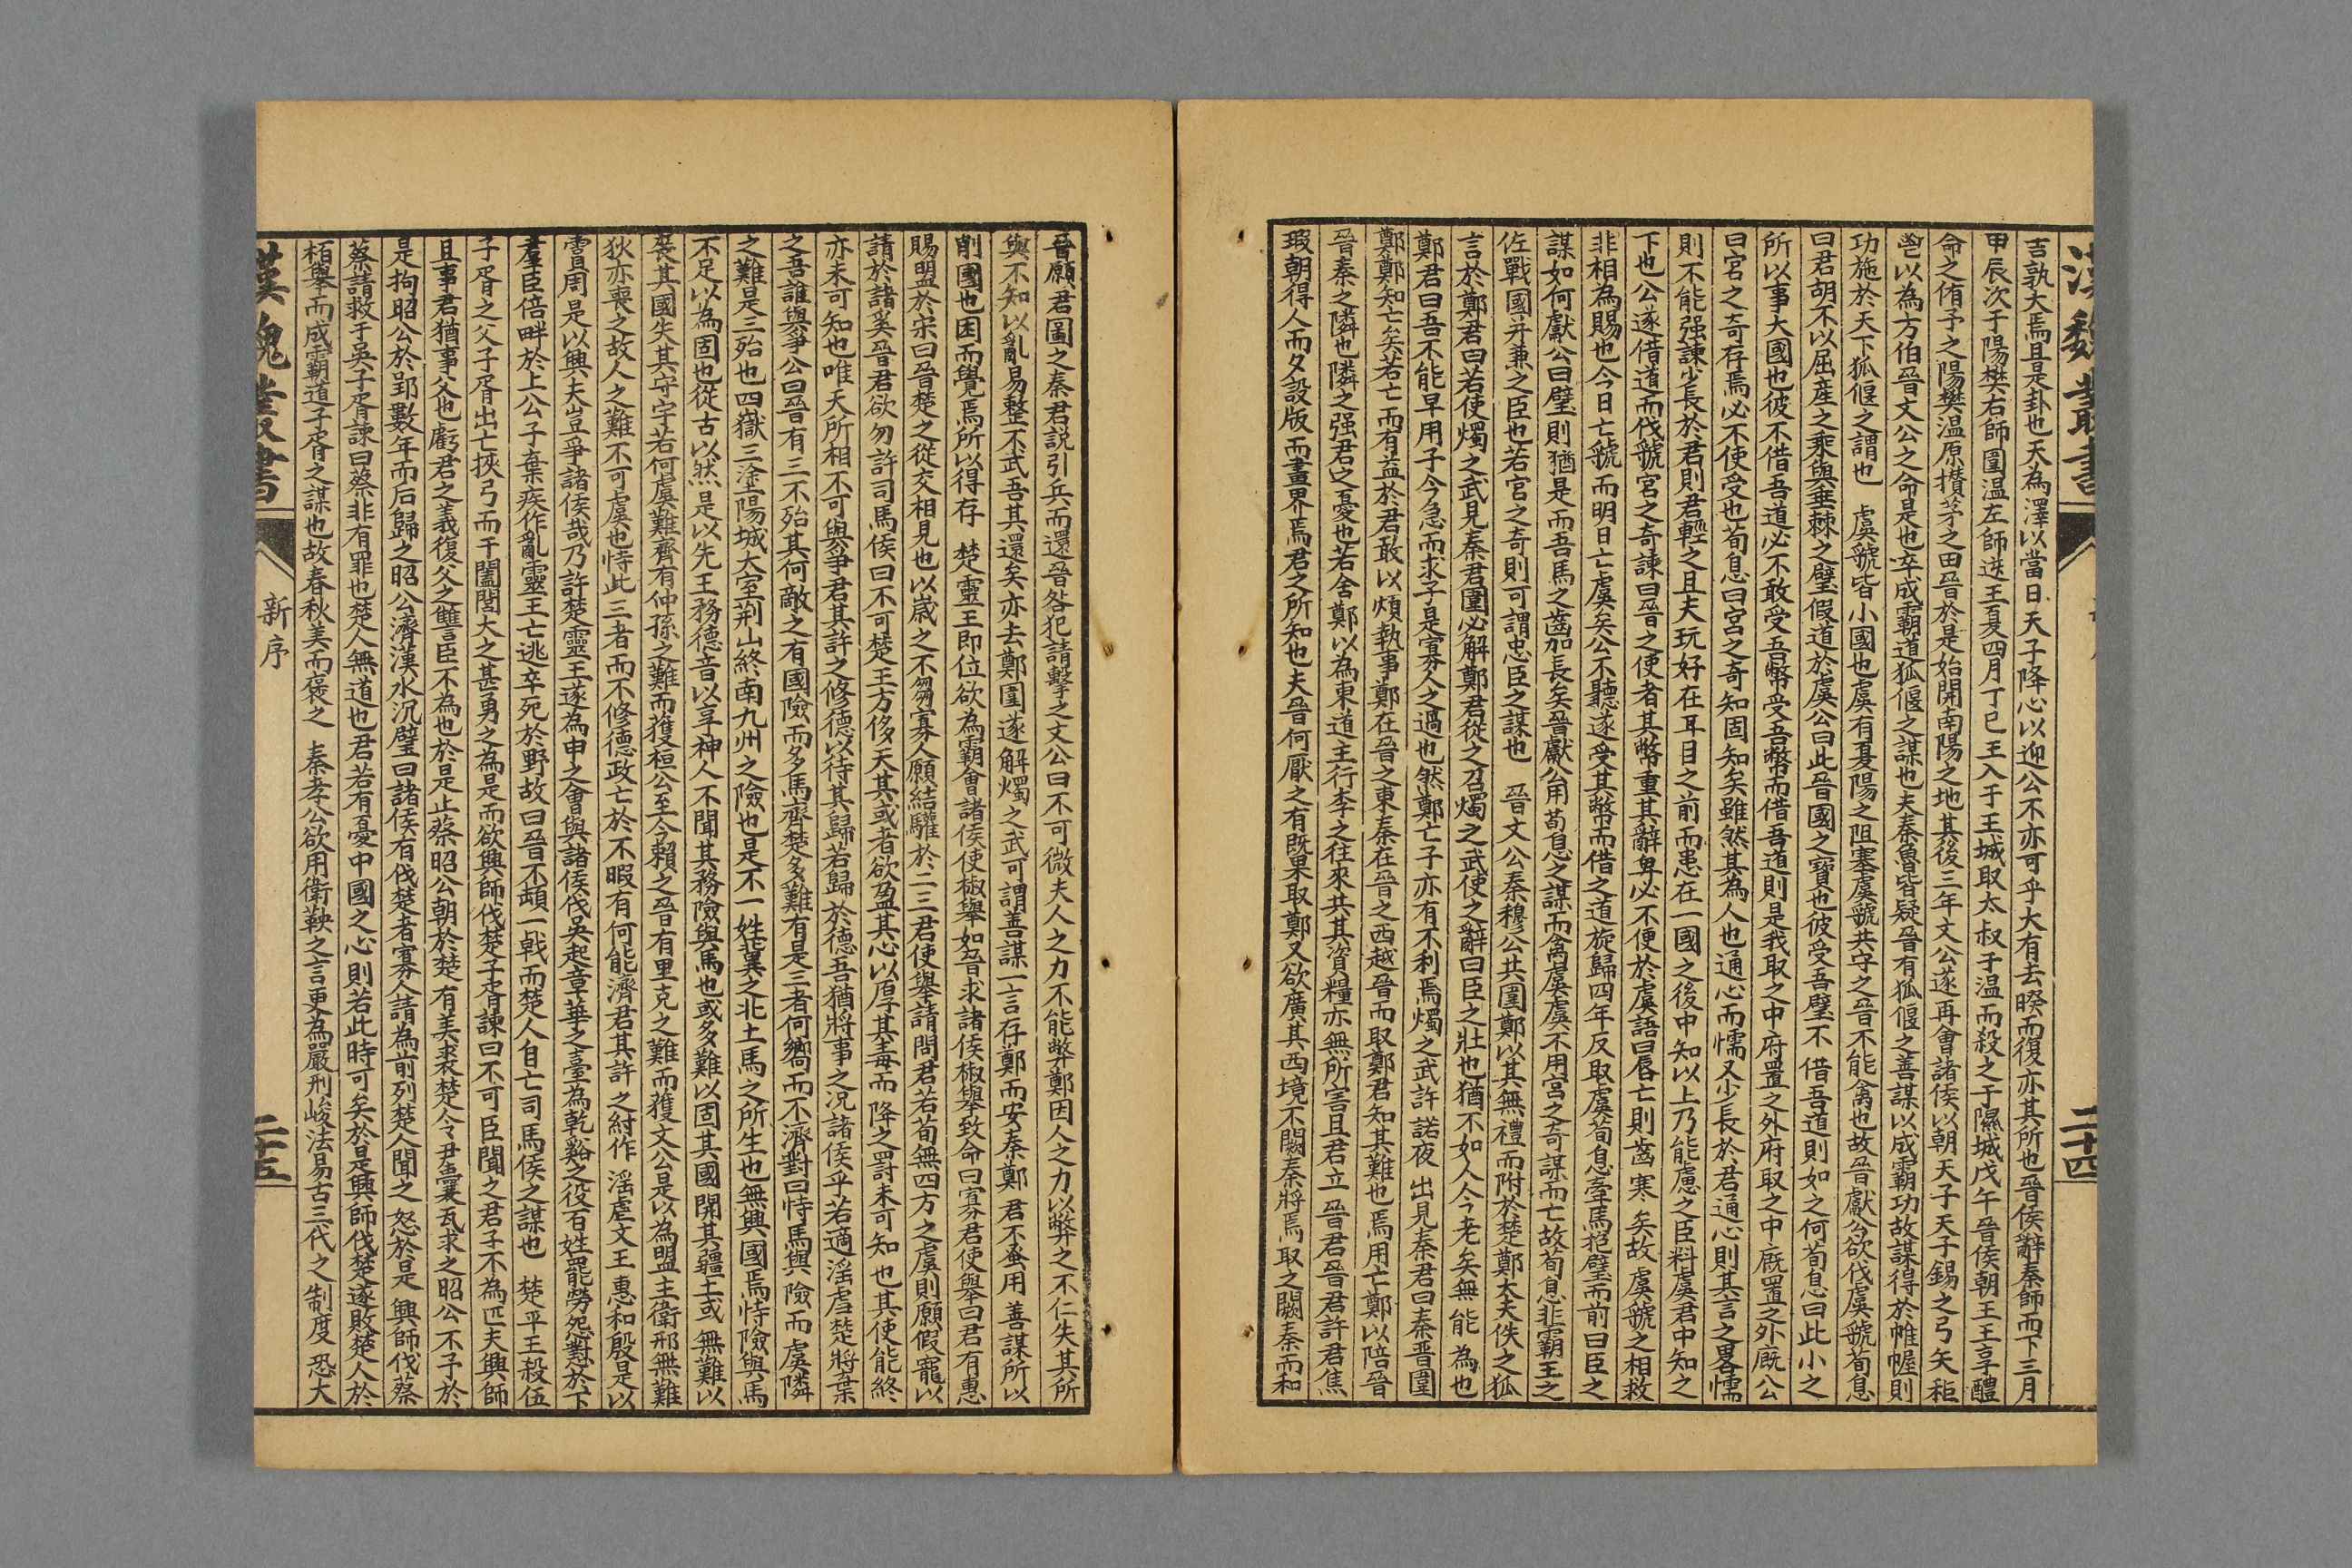 漢魏叢書
二十四
吉孰大焉且是卦也天為澤以當日天子降心以迎公不亦可乎大有去暌而復亦其所也晉侯辭秦師而下三月
甲辰次于陽樊右師圍温左師逆王夏四月丁巳王入于王城取太叔于温而殺之于隰城戊午晉侯朝王王享醴
命之侑予之陽樊温原攅茅之田晉於是始開南陽之地其後三年文公遂再會諸侯以朝天子天子錫之弓矢秬
鬯以為方伯晉文公之命是也卒成霸道狐偃之謀也夫秦魯皆疑晉有狐偃之善謀以成霸功故謀得於帷幄則
功施於天下狐偃之謂也　虞虢皆小國也虞有夏陽之阻塞虞虢共守之晉不能禽也故晉獻公欲伐虞虢荀息
曰君胡不以屈産之乘與垂棘之璧假道於虞公曰此晉國之寶也彼受吾璧不借吾道則如之何荀息曰此小之
所以事大國也彼不借吾道必不敢受吾幣受吾幣而借吾道則是我取之中府置之外府取之中廐置之外廐公
曰宮之奇存焉必不使受也荀息曰宮之奇知固知矣雖然其為人也通心而懦又少長於君通心則其言之畧懦
則不能强諫少長於君則君輕之且夫玩好在耳目之前而患在一國之後中知以上乃能慮之臣料虞君中知之
下也公遂借道而伐虢宮之奇諫曰晉之使者其幣重其辭卑必不便於虞語曰脣亡則齒寒矣故虞虢之相救
非相為賜也今日亡虢而明日亡虞矣公不聽遂受其幣而借之道旋歸四年反取虞荀息牽馬抱璧而前曰臣之
謀如何獻公曰璧則猶是而吾馬之齒加長矣晉獻公用荀息之謀而禽虞虞不用宮之奇謀而亡故荀息非霸王之
佐戰國并兼之臣也若宮之奇則可謂忠臣之謀也　晉文公秦穆公共圍鄭以其無禮而附於楚鄭大夫佚之狐
言於鄭君曰若使燭之武見秦君圍必解鄭君從之召燭之武使之辭曰臣之壯也猶不如人今老矣無能為也
鄭君曰吾不能早用子今急而求子是寡人之過也然鄭亡子亦有不利焉燭之武許諾夜出見秦君曰秦晉圍
鄭鄭知亡矣若亡而有益於君敢以煩執事鄭在晉之東秦在晉之西越晉而取鄭君知其難也焉用亡鄭以陪晉
晉秦之隣也隣之强君之憂也若舍鄭以為東道主行李之往來共其資糧亦無所害且君立晉君晉君許君焦
瑕朝得人而夕設版而畫界焉君之所知也夫晉何厭之有既果取鄭又欲廣其西境不闕秦將焉取之闕秦而和
晉願君圖之秦君説引兵而還晉咎犯請擊之文公曰不可微夫人之力不能弊鄭因人之力以弊之不仁失其所
與不知以亂易整不武吾其還矣亦去鄭圍遂解燭之武可謂善謀一言存鄭而安秦鄭君不蚤用善謀所以
削國也困而覺焉所以得存　楚靈王即位欲為霸會諸侯使椒舉如晉求諸侯椒舉致命曰寡君使舉曰君有惠
賜盟於宋曰晉楚之從交相見也以歲之不芻寡人願結驩於二三君使舉請問君若苟無四方之虞則願假寵以
請於諸奚晉君欲勿許司馬侯曰不可楚王方侈天其或者欲盈其心以厚其毒而降之罰未可知也其使能終
亦未可知也唯天所相不可與爭君其許之修德以待其歸若歸於德吾猶將事之况諸侯乎若適淫虐楚將棄
之吾誰與爭公曰晉有三不殆其何敵之有國險而多馬齊楚多難有是三者何嚮而不濟對曰恃馬與險而虞隣
之難是三殆也四嶽三塗陽城大室荆山終南九州之險也是不一姓冀之北土馬之所生也無興國焉恃險與馬
不足以為固也從古以然是以先王務德音以享神人不聞其務險與馬也或多難以固其國開其疆土或無難以
喪其國失其守宇若何虞難齊有仲孫之難而獲桓公至今賴之晉有里克之難而獲文公是以為盟主衛邢無難
狄亦喪之故人之難不可虞也恃此三者而不修德政亡於不暇有何能濟君其許之紂作淫虐文王惠和殷是以
霣周是以興夫豈爭諸侯哉乃許楚靈王遂為申之會與諸侯伐吳起章華之臺為乾谿之役百姓罷勞怨懟於下
羣臣倍畔於上公子棄疾作亂靈王亡逃卒死於野故曰晉不頓一戟而楚人自亡司馬侯之謀也　楚平王殺伍
子胥之父子胥出亡挾弓而干闔閭大之甚勇之為是而欲興師伐楚子胥諫曰不可臣聞之君子不為匹夫興師
且事君猶事父也虧君之義復父之讎臣不為也於是止蔡昭公朝於楚有美裘楚令尹囊瓦求之昭公不予於
是拘昭公於郢數年而后歸之昭公濟漢水沉璧曰諸侯有伐楚者寡人請為前列楚人聞之怒於是興師伐蔡
蔡請救于吳子胥諫曰蔡非有罪也楚人無道也君若有憂中國之心則若此時可矣於是興師伐楚遂敗楚人於
栢舉而成霸道子胥之謀也故春秋美而褒之　秦孝公欲用衛鞅之言更為嚴刑峻法易古三代之制度恐大
漢魏叢書
新序
二十五